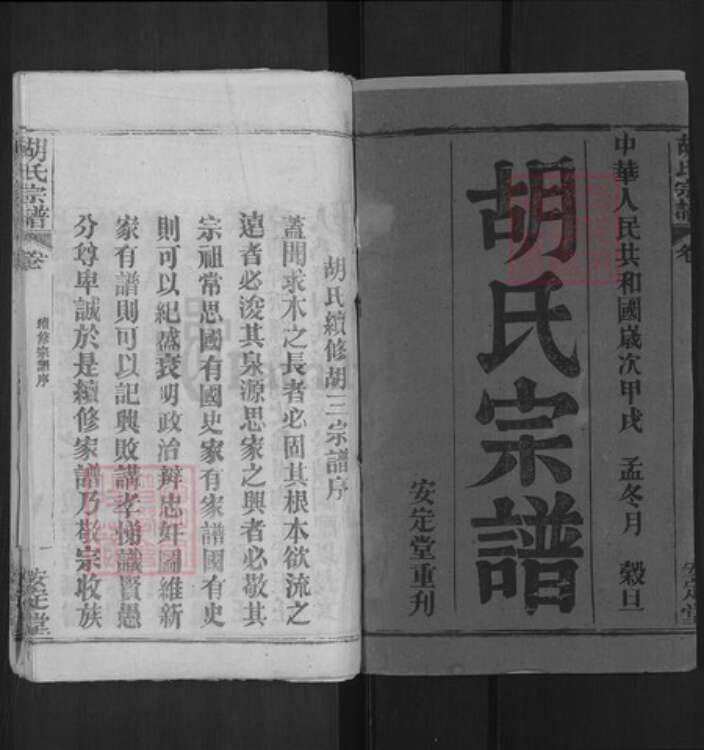 中華人民共和國歲次甲戌 孟冬月 穀旦
胡氏宗譜
安定堂重刋
胡氏續修胡三宗譜序
蓋聞求木之長者必固其根本欲流之
遠者必浚其泉源思家之興者必敬其
宗祖常思國有國史家有家譜國有史
則可以紀盛衰明政治辨忠奸圖維新
家有譜則可以記興敗講孝悌識賢愚
分尊卑誠於是續修家譜乃敬宗收族
胡氏宗譜
卷
續修宗譜序
一
安定堂